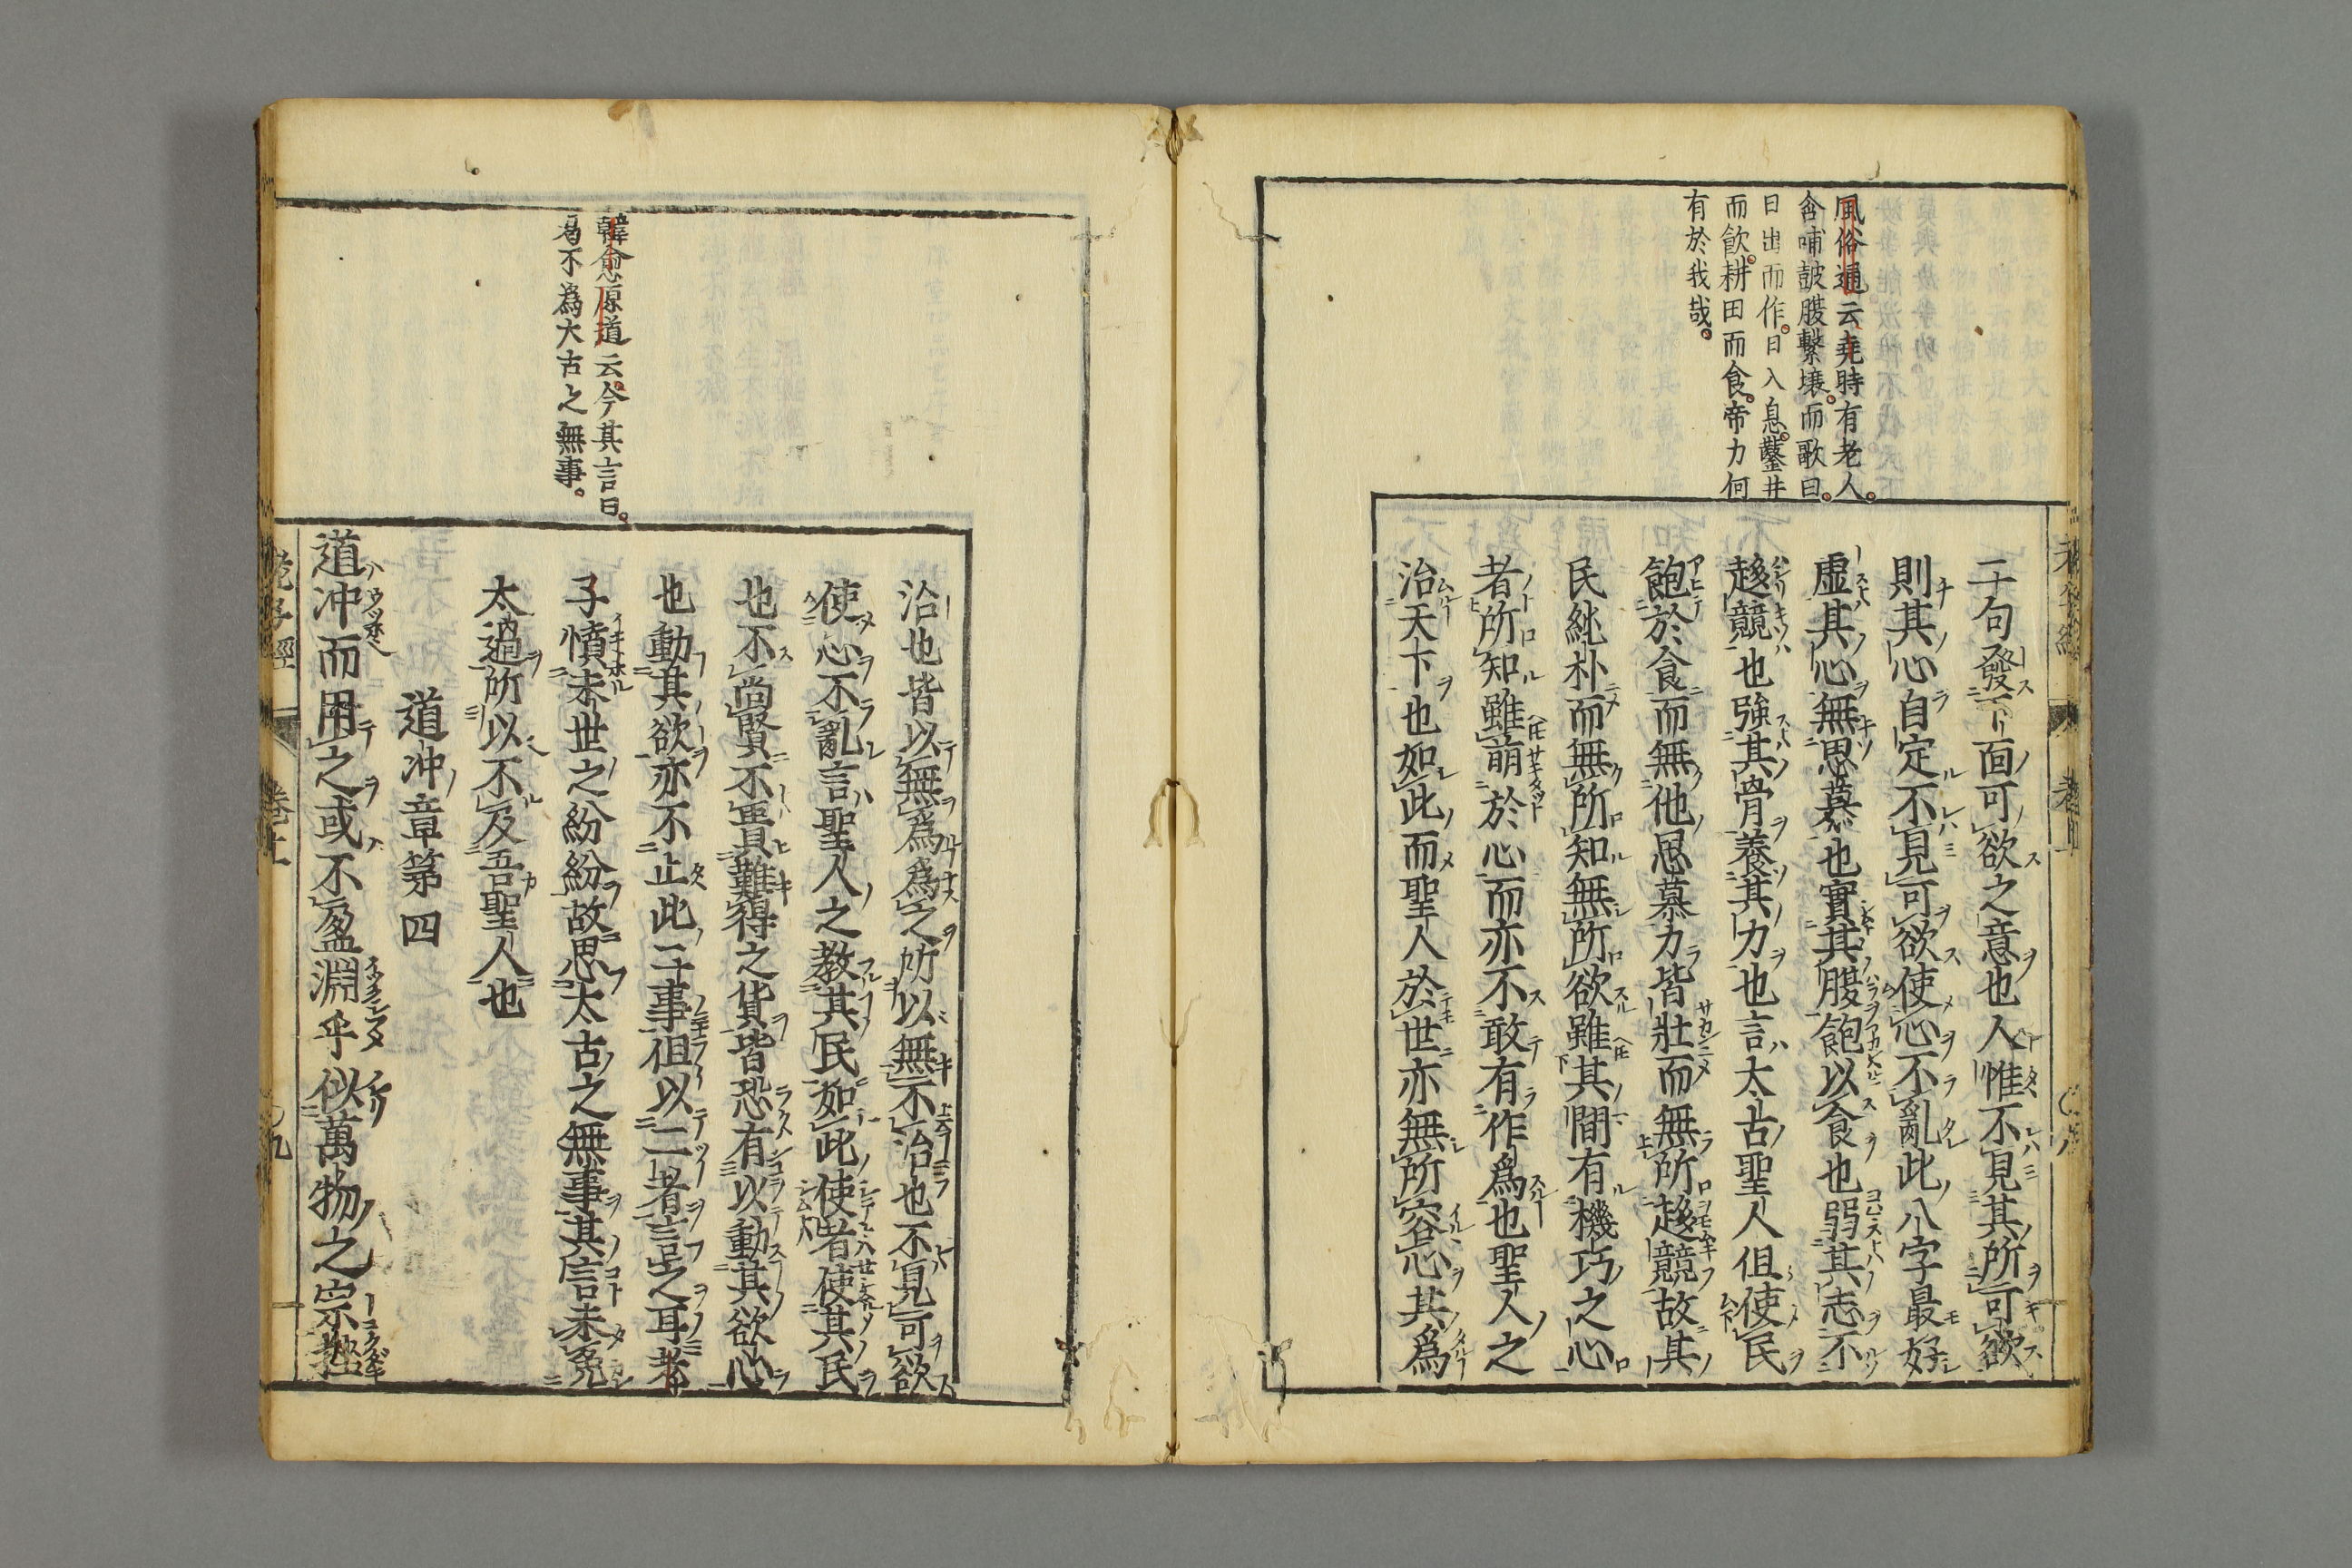 風俗通云堯時有老人
含哺皷腹繫壤而歌曰
日出而作日入息鑿井
而飲耕田而食帝力何
有於我哉
二句發下面可欲之意也人惟不見其所可欲
則其心自定不見可欲使心不亂此八字最好
虛其心無思慕也實其腹飽以食也弱其志不
趍競也強其骨養其力也言太古聖人但使民
飽於食而無他思慕力皆壯而無所趍競故其
民純朴而無所知無所欲雖其間有機巧之心
者所知雖萌於心而亦不敢有作爲也聖人之
治天下也如此而聖人於世亦無所容心其爲
韓愈原道云今其言曰
曷不爲太古之無事
治也皆以無爲爲之所以無不治也不見可欲
使心不亂言聖人之教其民如此使者使其民
也不尚賢不貴難得之貨皆恐有以動其欲心
也動其欲亦不止此二事但以二者言之耳老
子憤末世之紛紛故思太古之無事其言未免
太過所以不及吾聖人也
道冲章第四
道冲而用之或不盈淵乎似萬物之宗挫
老子經
卷上
九